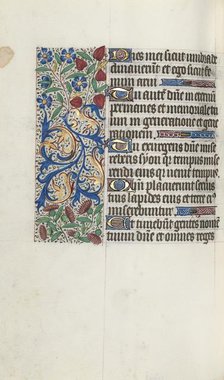 Dies mei sicut umbra de
clinaverunt et ego sicut fe
num arui
Tu autem dne in eternum
permanes et memoriale tu
um in generatione et gene
rationem
Tu exurgens dne mise
reberis syon quia tempus mise
rendi eius quia venit tempus
Qm placuerunt servis
tuis lapides eius et terre eius
miserebuntur
Et timebunt gentes nomen
tuum dne et omnes reges